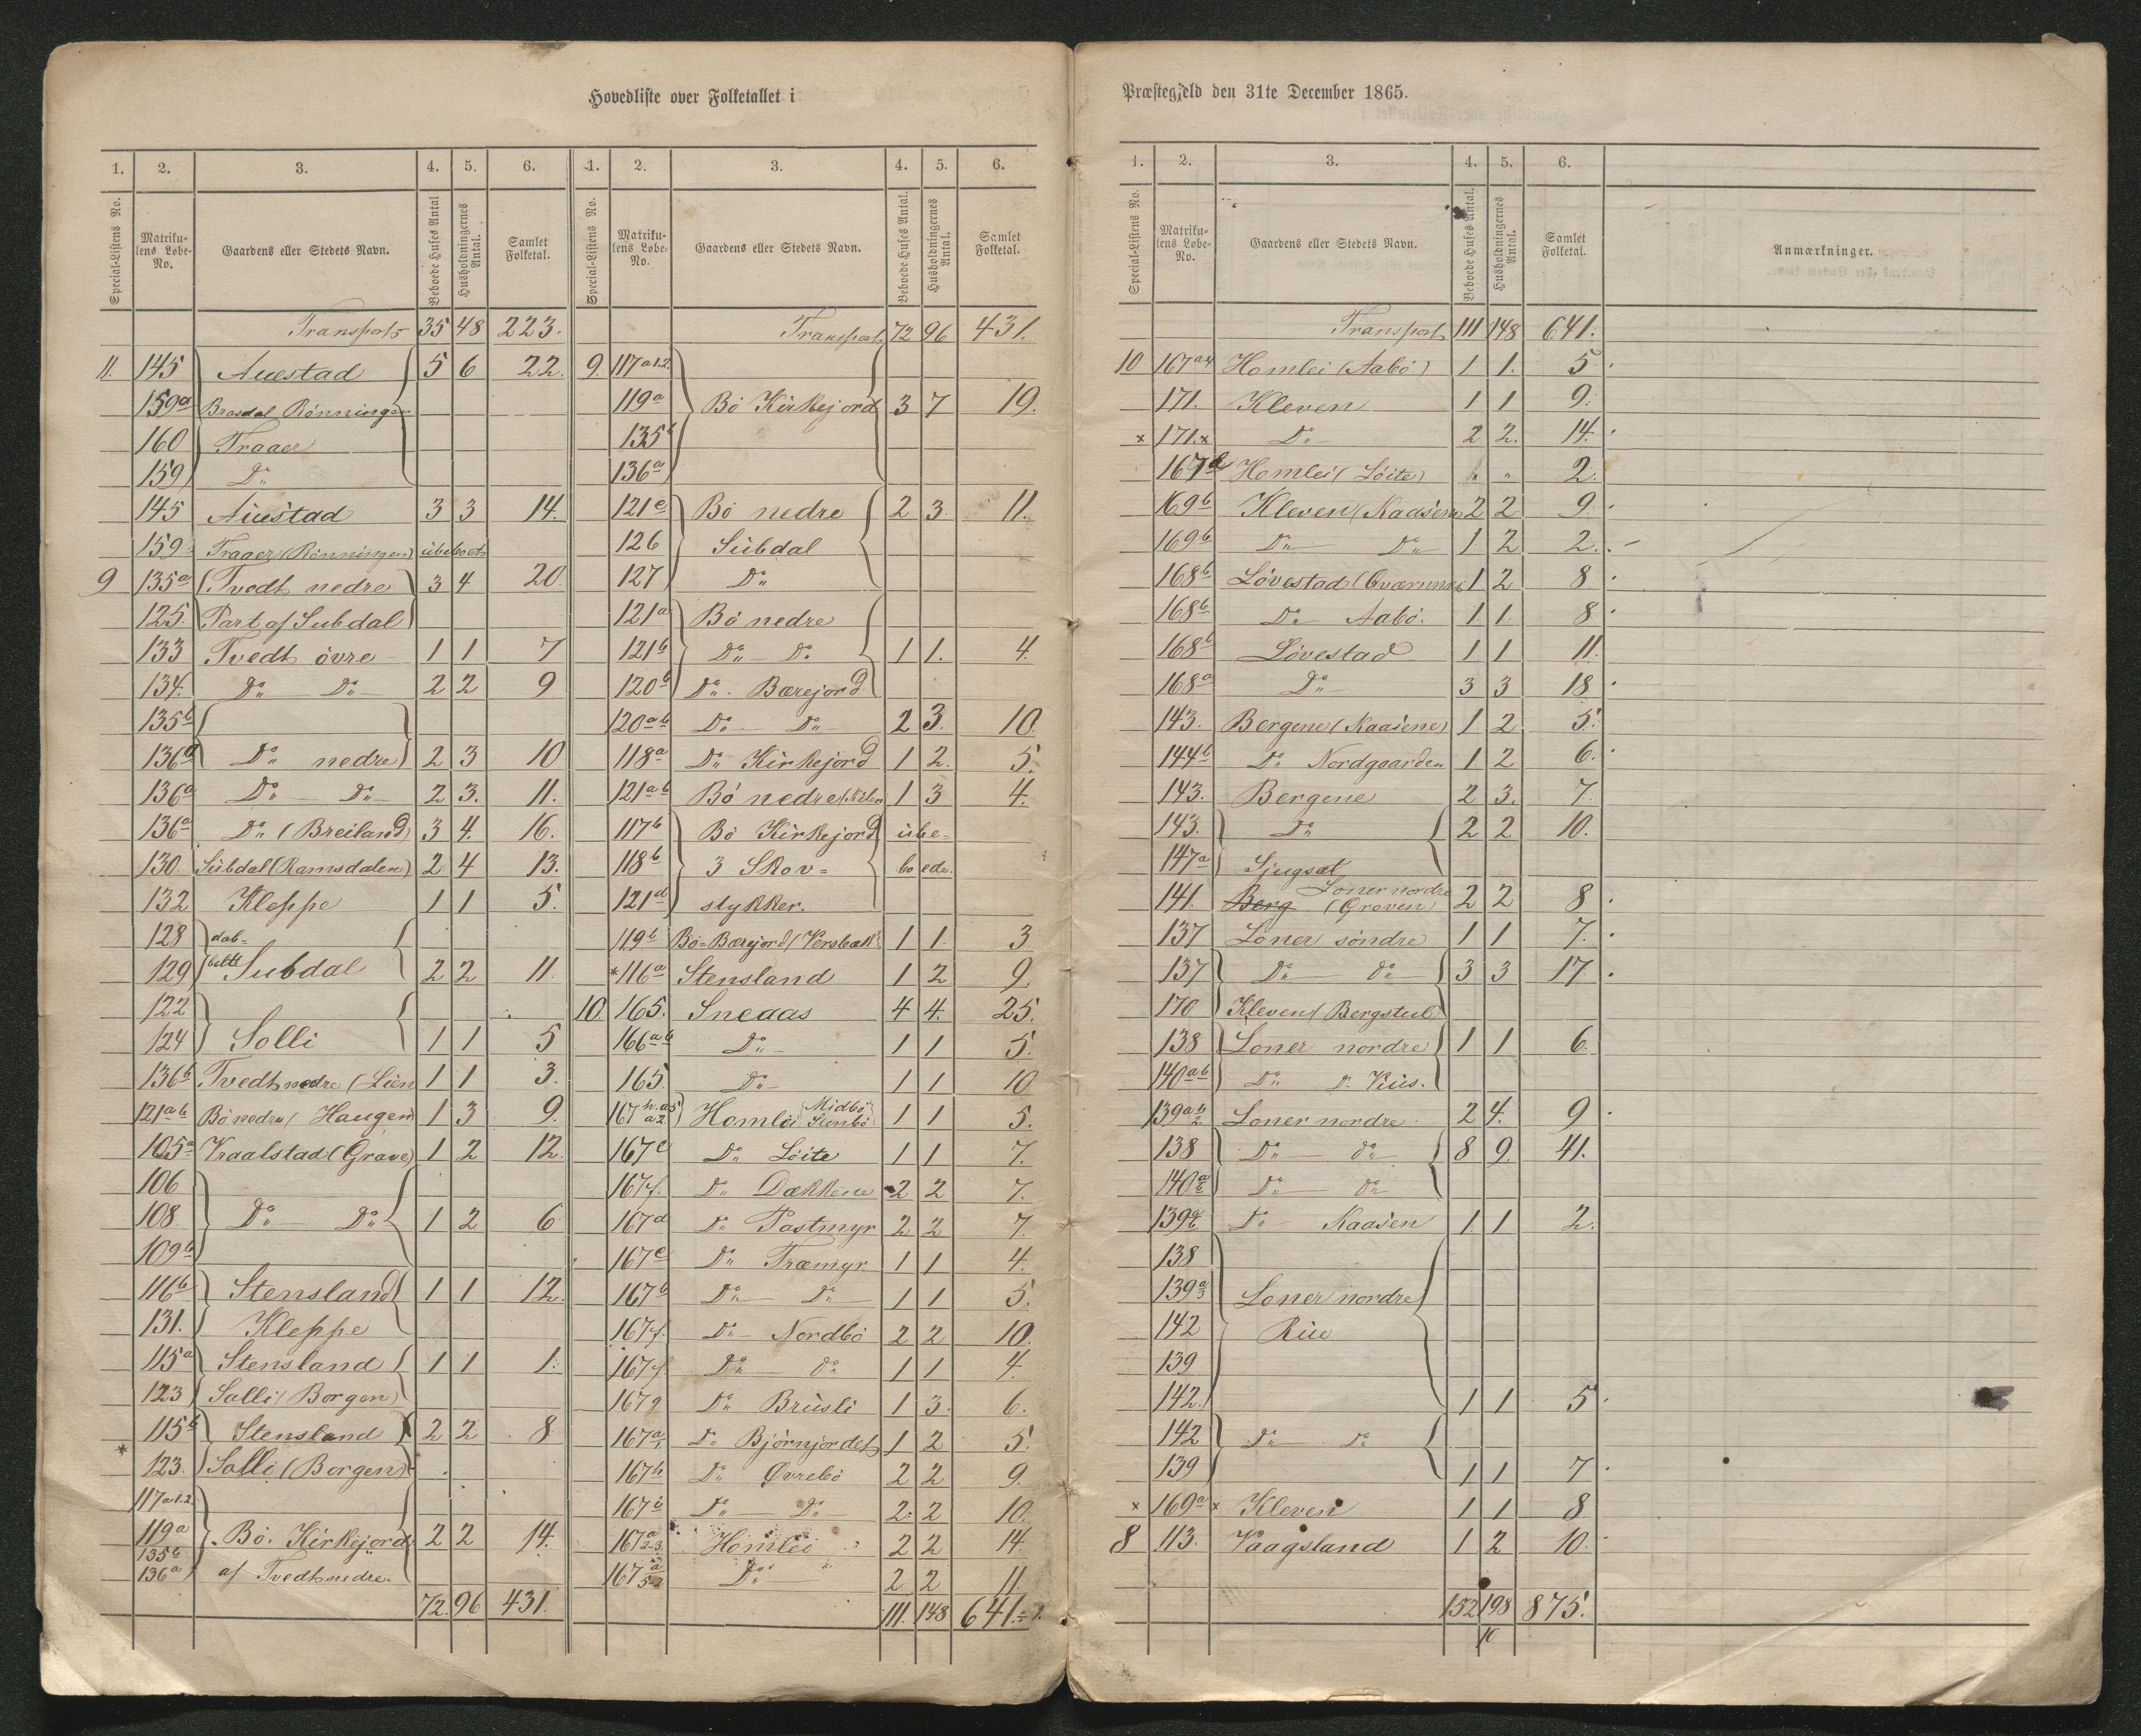 Hovedliste over Folketallet i
1. 2. 3. 4. 5. 6.
Special-Listens No. Matrikulens Løbe-No. Gaardens eller Stedets Navn. Beboede Huses Antal Husholdningernes Antal. Samlet Folketal.
Transport 35 48 223.
11. 145 Auestad 5 6 22.
159a Brasdal Rønningen
160 Traaer
159 Do
145 Auestad 3 3 14.
159 Traaer (Rønningen) ubeboet
9 135a Tvedt nedre 3 4 20.
125. Part af Subdal
133 Tvedt övre 1 1 7
134. Do Do 2 2 9
135b
136d Do nedre 2 3 10
136a Do Do 2 3. 11.
136a Do (Breiland) 3 4. 16.
130 Subdal (Ramsdalen) 2 4 13.
132 Kleppe 1 1 5.
128 dob-
129 belte Subdal 2 2 11.
122
124 Solli 1 1 5
136b Tvedt nedre (Lien 1 1 3.
121ab Bö nedre (Haugen) 1 3 9.
105a Vraalstad (Grave) 1 2 12.
106
108 Do Do 1 2 6
109b
116b Stensland 1 1 12.
131. Kleppe
115a Stensland 1 1 1.
123 Solli (Borgen)
115b Stensland 2 2 8
* 123. Solli (Borgen)
117a1.2.
119a Bö. Kirkejord 2 2 14.
135b
136a af Tvedt nedre.
72. 96 431.
1. 2. 3. 4. 5. 6.
Special-Listens No. Matrikulens Løbe-No. Gaardens eller Stedets Navn. Beboede Huses Antal. Husholdningernes Antal. Samlet Folketal.
Transport 72 96 431.
9. 117a1.2.
119a Bö Kirkejord 3 7 19.
135b
136a
121c Bö nedre 2 3 11.
126 Subdal
127 Do
121a Bö nedre
121b Do Do 1 1. 4.
120b Do. Bærejord
120ab Do Do 2 3. 10.
118a Do Kirkejord 1 2. 5.
121ab Bö nedre 1 3 4.
117b Bö Kirkejord ube-
118b 3 Skov- boede.
121d stykker.
119b Bö-Bærejord (Versbak 1 1. 3
*116a Stensland 1 2 9.
10. 165. Sneaas 4 4. 25.
166ab Do 1 1 5.
165. Do 1 1 10
167 Homlei Midbö Stenbö 1 1 5.
167c Do Löite 1 1 7.
167f. Do Dækkene 2 2 7.
167d Do Pastmyr 2 2 7.
167e Do Træmyr 1 1 4.
167b Do Do 1 1 5.
167f. Do Nordbö 2 2 10.
167f Do do 1 1 4.
167g Do Brusli 1 3. 6.
167a1 Do Björnjordet 1 2 5.
167h Do Øvrebö 2 2 9.
167i Do Do 2. 2 10.
167a2-3. Homlei 2 2 14.
167a Do 2 2 11.
111. 148 641.
Præstegjeld den 31te December 1865.
1. 2. 3. 4. 5. 6.
Special-Listens No. Matrikulens Løbe-No. Gaardens eller Stedets Navn. Beboede Huses Antal. Husholdningernes Antal. Samlet Folketal. Anmærkninger.
Transport 111 148 641.
10 167a4 Homlei (Aabö) 1 1. 5.
171. Kleven 1 1 9.
x 171.x Do 2 2. 14.
167 Homlei (Löite) " " 2.
169b Kleven (Kaasene 2 2 9.
169b Do Do 1 2 2.
168b Lövestad 1 2 8
168b Do Aabö. 1 1. 8.
168b Lövestad 1 1 11.
168a Do 3 3 18
143. Bergene (Kaasene) 1 2 5.
144b Do Nordgaarden 1 2 6.
143. Bergene 2 3. 7.
143. Do 2 2 10.
147a Sjugsat
141. Berg Loner nordre (Groven) 2 2 8
137 Loner söndre 1 1 7.
137 Do do 3 3 17
170 Kleven (Bergstul)
138 Loner nordre 1 1 6.
140ab Do do
139ab2 Loner nordre 2 4. 9
138 Do do 8 9. 41.
140ab Do do
139 Do Kaasen 1 1 2.
138
139a3 Loner nordre
142 Rue
139
142. 1 1 5
142 Do Do
139 1 1 7
x 169ax Kleven 1 1 8
8 113. Vaagsland 1 2 10.
152 198 875.